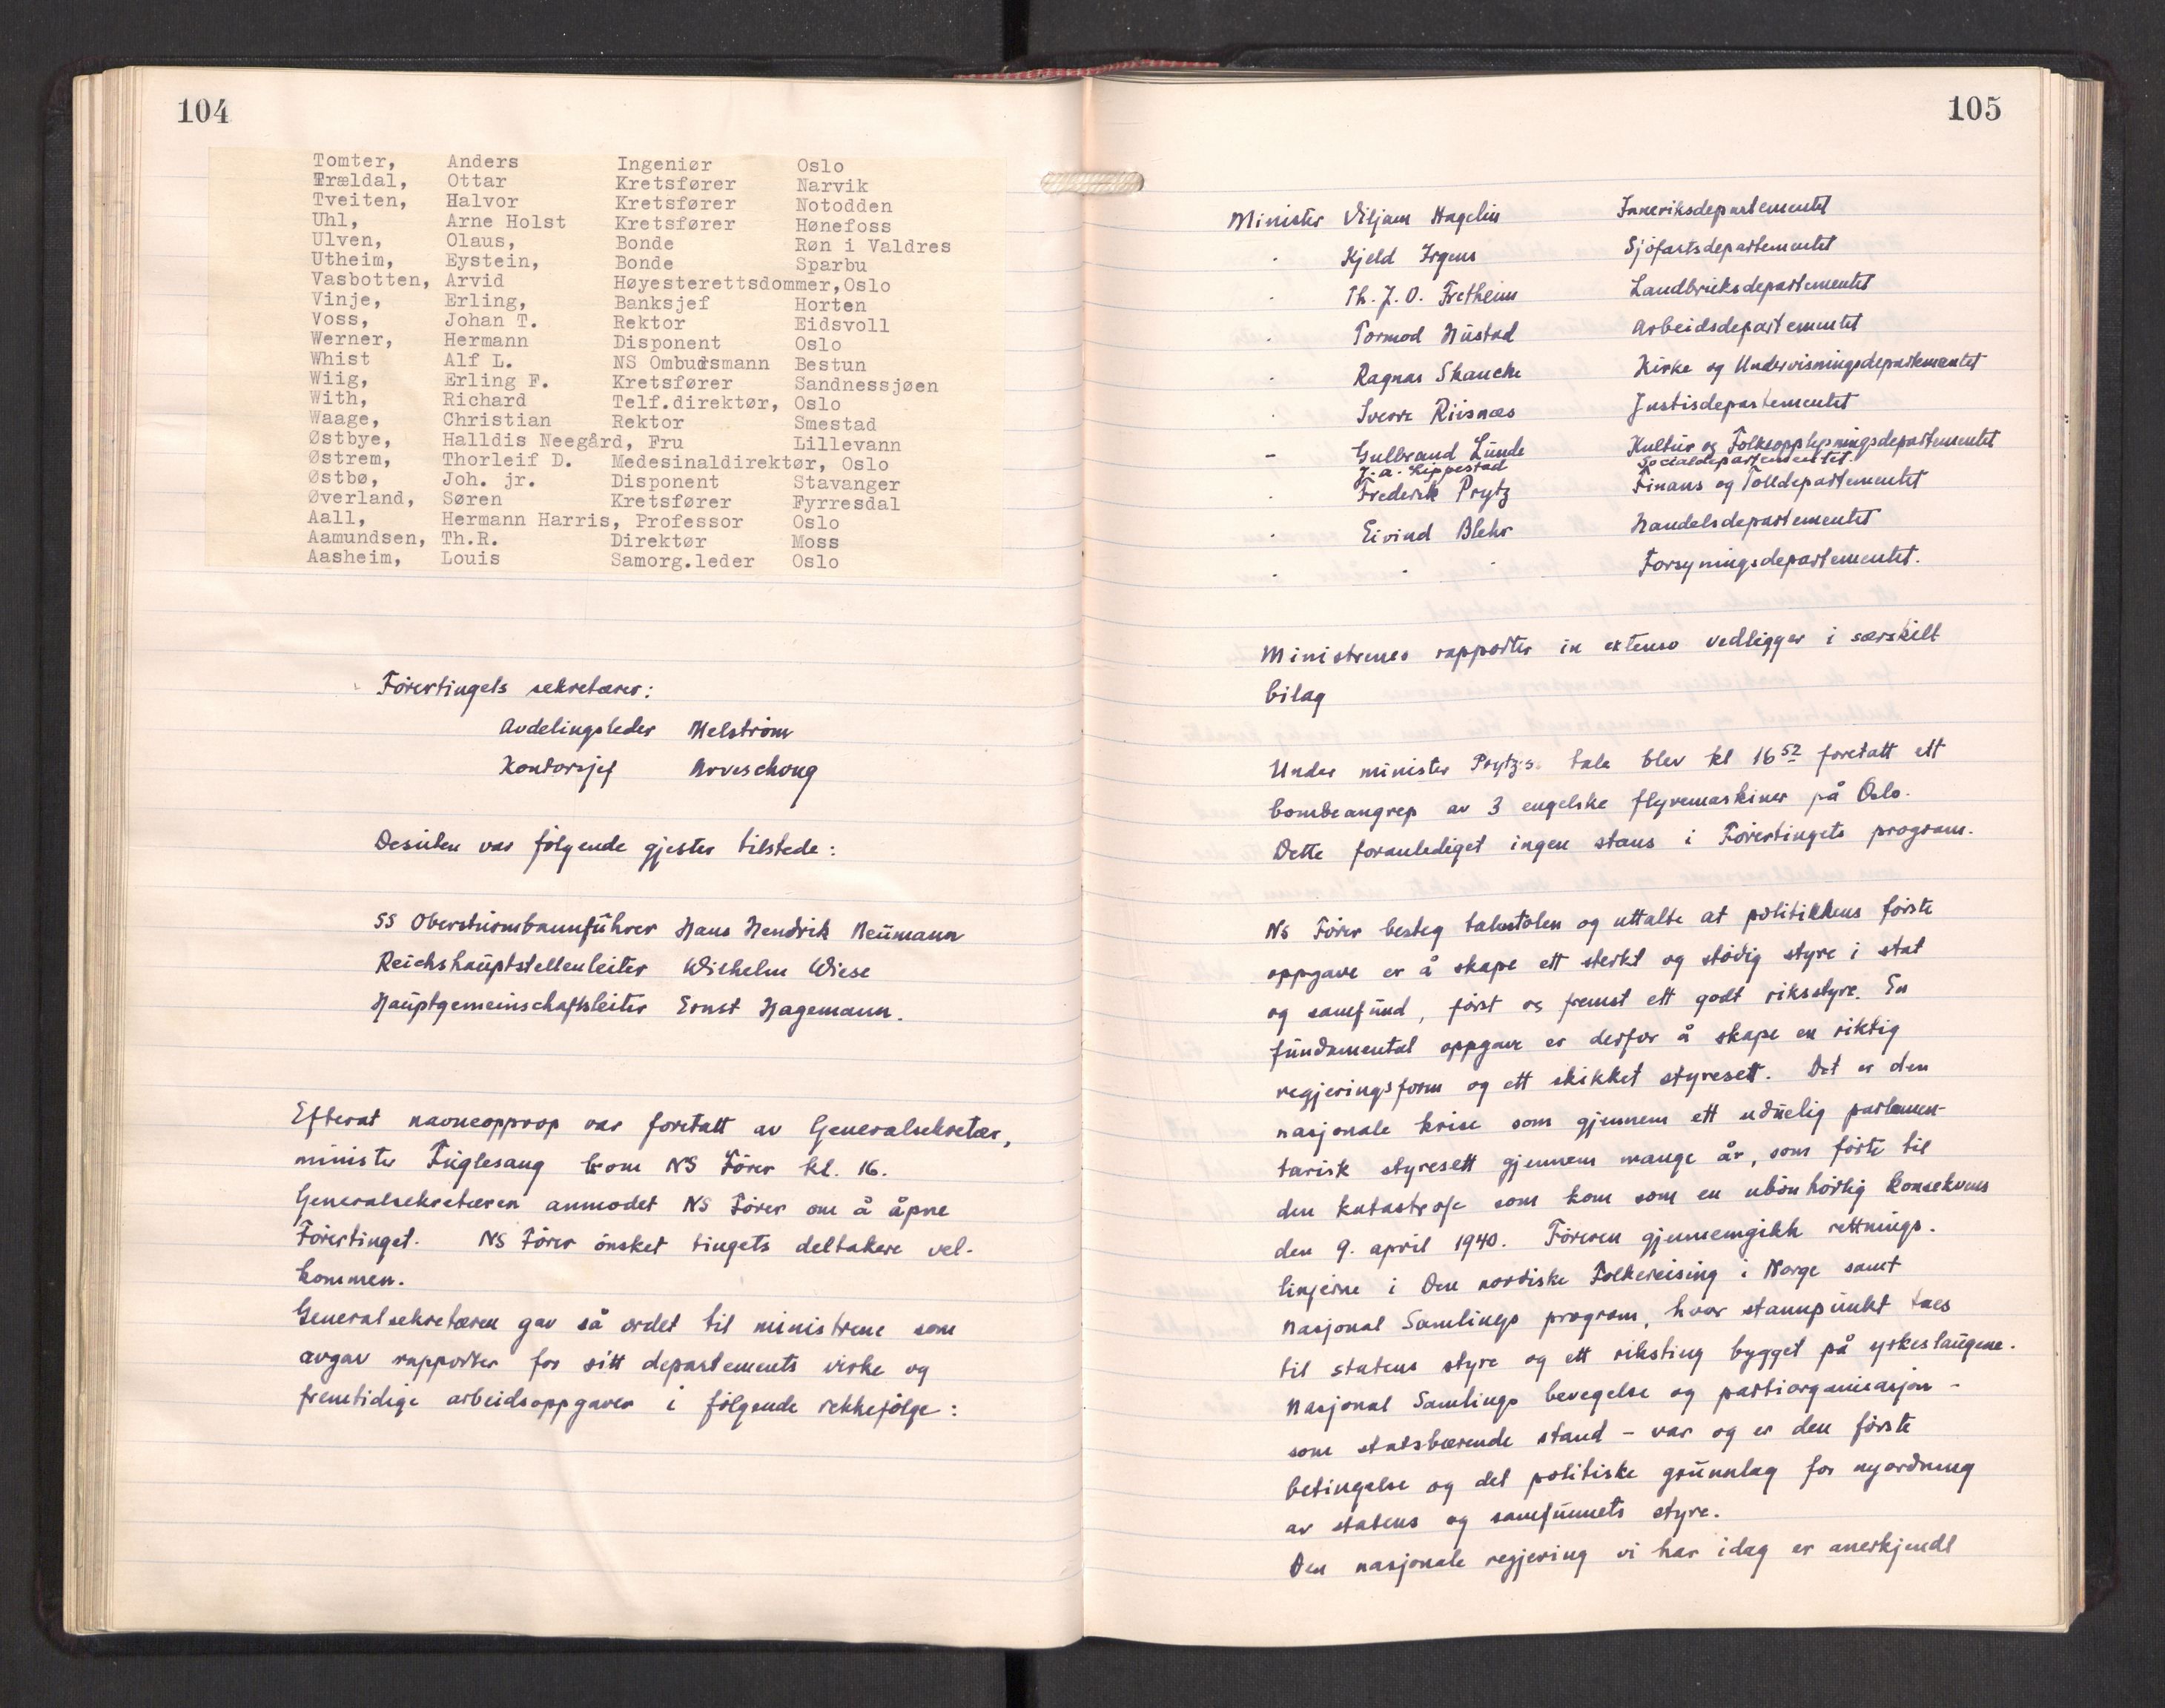 104
Tomter, Anders Ingeniør Oslo
Træeldal, Ottar Kretsfører Narvik
Tveiten, Halvor Kretsfører Notodden
Uhl, Arne Holst Kretsfører Hønefoss
Ulven, Olaus, Bonde Røn i Valdres
Utheim, Eystein, Bonde Sparbu
Vasbotten, Arvid Høyesterettsdommer, Oslo
Vinje, Erling, Banksjef Horten
Voss, Johan T. Rektor Eidsvoll
Werner, Hermann Disponent Oslo
Whist Alf L. NS Ombudsmann Bestun
Wiig, Erling F. Kretsfører Sandnessjøen
With, Richard Telf.direktør, Oslo
Waage, Christian Rektor Smestad
Østbye, Halldis Neegård, Fru Lillevann
Østrem, Thorleif D. Medesinaldirektør, Oslo
Østbø, Joh. jr. Disponent Stavanger
Øverland, Søren Kretsfører Fyrresdal
Aall, Hermann Harris, Professor Oslo
Aamundsen, Th.R. Direktør Moss
Aasheim, Louis Samorg.leder Oslo
Førertingets sekretærer:
Avdelingsleder Melstrøm
Kontorsjef Arveschoug
Desuten var følgende gjester tilstede:
SS Obersturmbannführer Hans Hendrik Neumann
Reichshauptstellenleiter Wilhelm Wiese
Hauptgemeinschaftsleiter Ernst Hagemann.
Efterat navneopprop var foretatt av Generalsekretær,
minister Fuglesang kom NS Fører kl. 16.
Generalsekretæren anmodet NS Fører om å åpne
Førertinget. NS Fører ønsket tingets deltakere vel-
kommen.
Generalsekretæren gav så ordet til ministrene som
avgav rapporter for sitt departements virke og
fremtidige arbeidsoppgaver i følgende rekkefølge:
105
Minister Viljam Hagelin Innenriksdepartementet
" Kjeld Irgens Sjøfartsdepartementet
" Th. J. O. Fretheim Landbruksdepartementet
" Tormod Hustad Arbeidsdepartementet
" Ragnar Skancke Kirke og Undervisningsdepartementet
" Sverre Riisnæs Justisdepartementet
- Gulbrand Lunde Kultur og Folkeopplysningsdepartementet
J. A. Lippestad Socialdepartementet.
" Frederik Prytz Finans og Tolldepartementet
" Eivind Blehr Handelsdepartementet
" " " Forsyningsdepartementet.
Ministrenes rapporter in extenso vedligger i særskilt
bilag
Under minister Prytz's tale blev kl 16 52 foretatt ett
bombeangrep av 3 engelske flyvemaskiner på Oslo.
Dette foranlediget ingen stans i Førertingets program.
NS Fører besteg talerstolen og uttalte at politikkens første
oppgave er å skape ett sterkt og stødig styre i stat
og samfund, først og fremst ett godt riksstyre. En
fundamental oppgave er derfor å skape en riktig
regjeringsform og ett skikket styresett. Det er den
nasjonale krise som gjennem ett uduelig parlamen-
tarisk styresett gjennem mange år, som førte til
den katastrofe som kom som en ubønhørlig konsekvens
den 9. april 1940. Føreren gjennemgikk rettnings-
linjerne i Den nordiske Folkereising i Norge samt
Nasjonal Samlings program, hvor stannpunkt taes
til statens styre og ett riksting bygget på yrkeslaugene.
Nasjonal Samlings bevegelse og partiorganisasjon -
som statsbærende stand - var og er den første
betingelse og det politiske grunnlag for nyordning
av statens og samfunnets styre.
Den nasjonale regjering vi har idag er anerkjendt